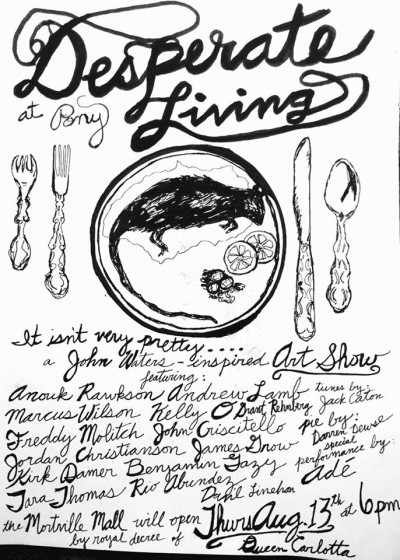 Desperate
Living
at Pony
It isn't very pretty....
a John Waters-inspired Art Show
featuring:
Anouk Rawkson Andrew Lamb
tunes by:
Jack Caton
Marcus Wilson Kelly O
Grant Rehnberg
Freddy Molitch John Criscitello
pie by:
Darren Dewse
Jordan Christianson James Grow
special
performance by:
Ade
Kirk Damer Benjamin Gazy
Tara Thomas Rio Abundez
Dryil Linehan
the Mortville Mall will open Thurs Aug. 13th at 6pm
by royal decree of
Queen Carlotta